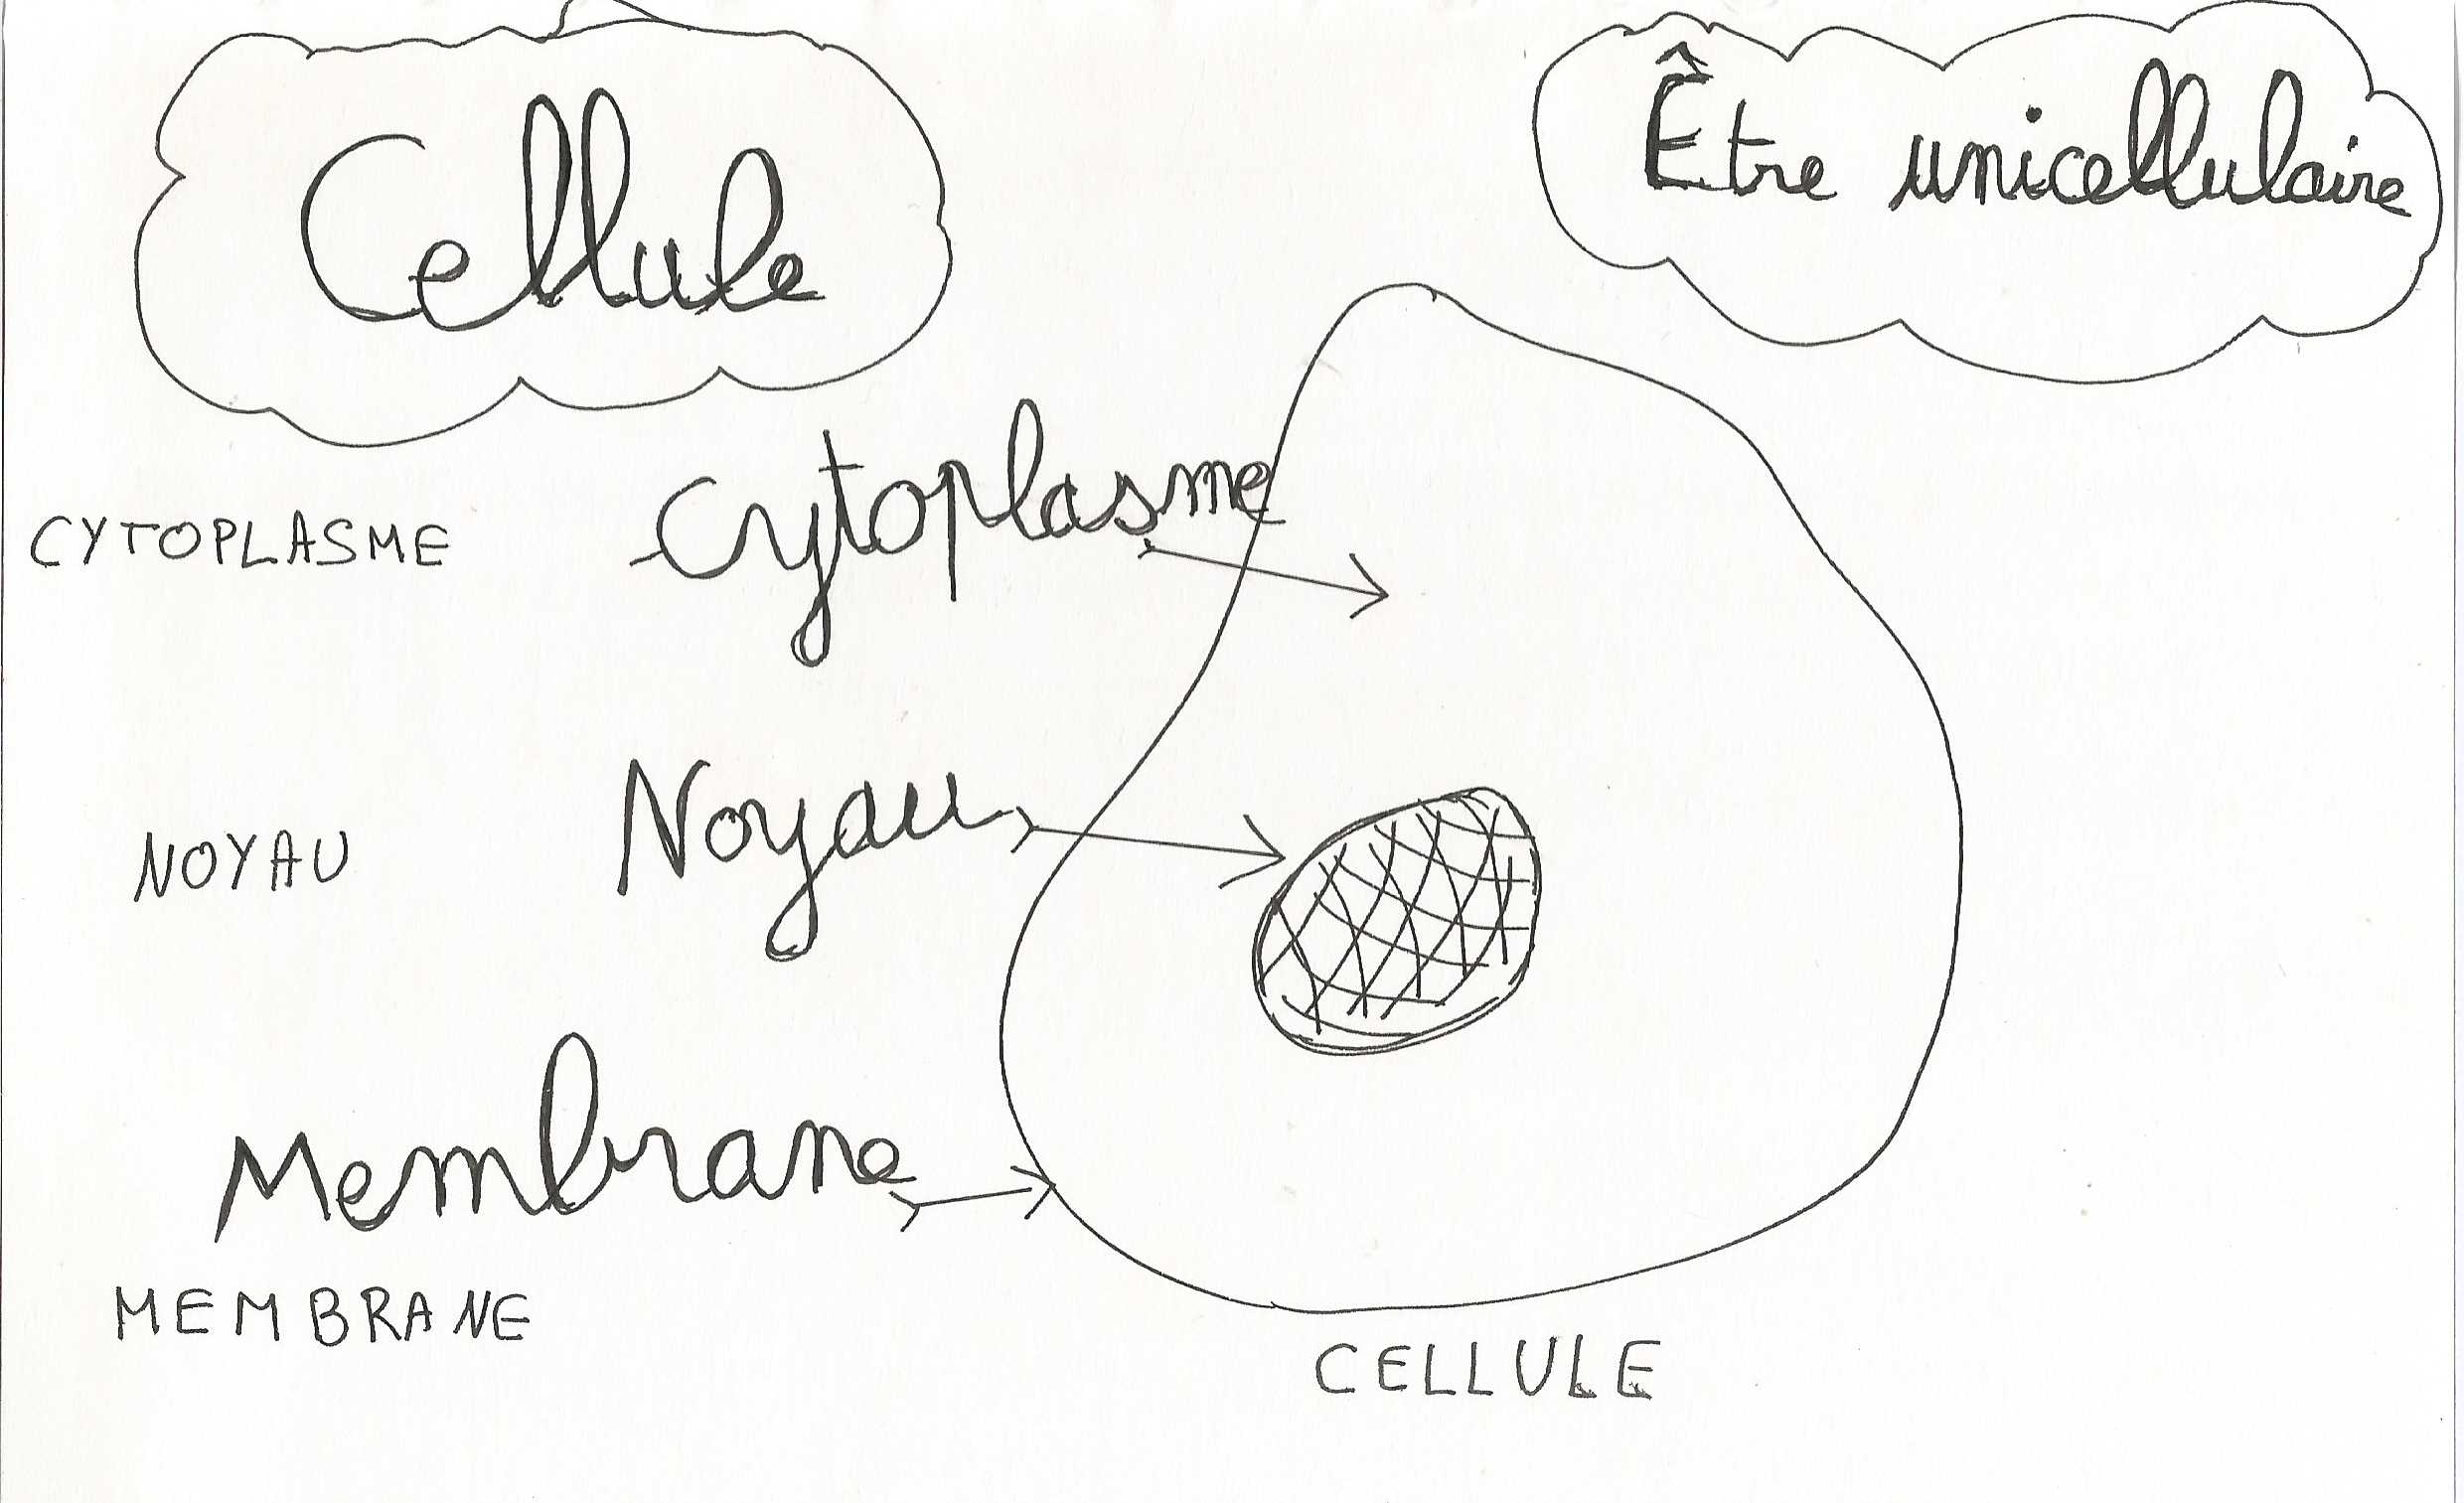 Cellule
Être unicellulaire
Cytoplasme
CYTOPLASME
Noyau
NOYAU
Membrane
MEMBRANE
CELLULE